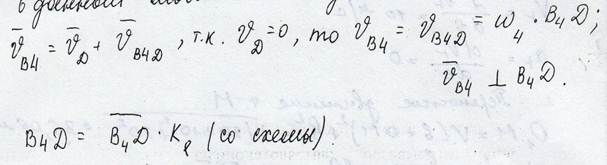 в данный мо
v̄_B4 = v̄_D + v̄_B4D , т.к. v_D = 0, то v_B4 = v_B4D = ω_4 · B_4D;
v̄_B4 ⊥ B_4D.
B_4D = \overline{B_4D} · K_ℓ (со схемы).